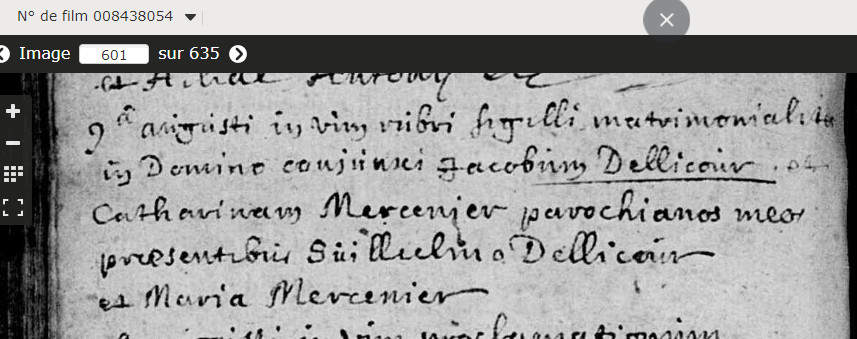 N° de film 008438054
Image 601 sur 635
et filiae Antonij
9ᵃ augusti in vim rubri sigilli matrimonialiter
in Domino conjunxi Jacobum Dellicour et
Catharinam Mercenier parochianos meos
præsentibus Guillielmo Dellicour
et Maria Mercenier
augusti in vim proclamationum